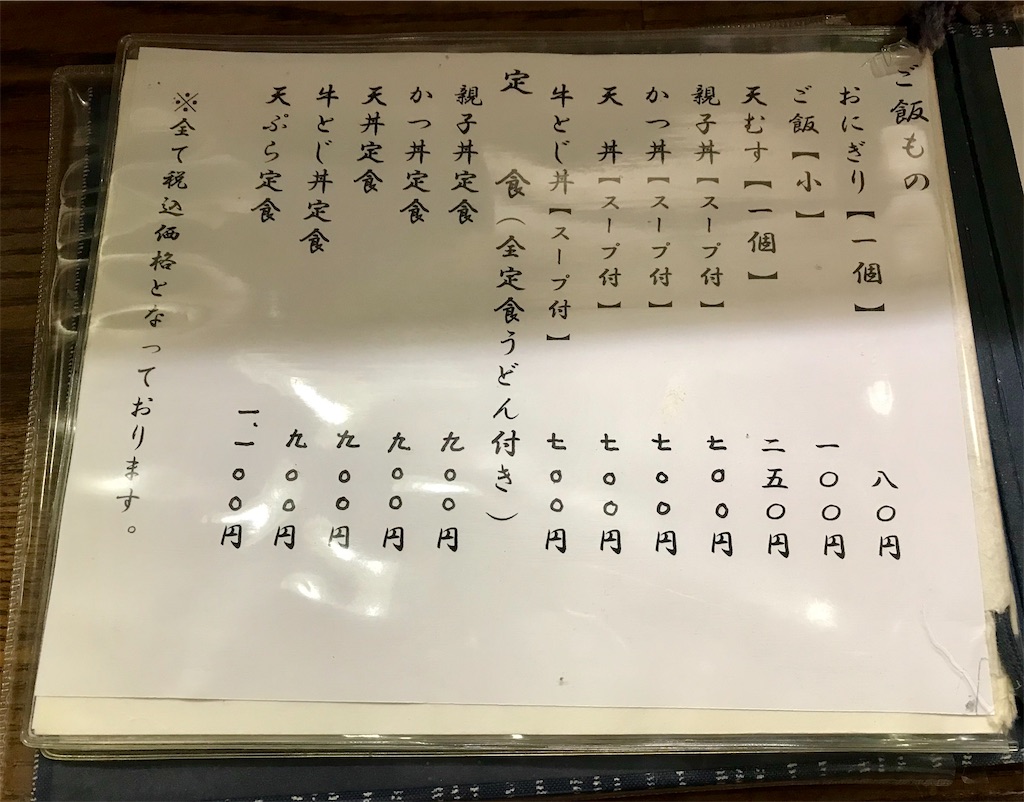 ご飯もの
おにぎり【一個】 八〇円
ご飯【小】 一〇〇円
天むす【一個】 二五〇円
親子丼【スープ付】 七〇〇円
かつ丼【スープ付】 七〇〇円
天 丼【スープ付】 七〇〇円
牛とじ丼【スープ付】 七〇〇円
定 食（全定食うどん付き）
親子丼定食 九〇〇円
かつ丼定食 九〇〇円
天丼定食 九〇〇円
牛とじ丼定食 九〇〇円
天ぷら定食 一、一〇〇円
※全て税込価格となっております。